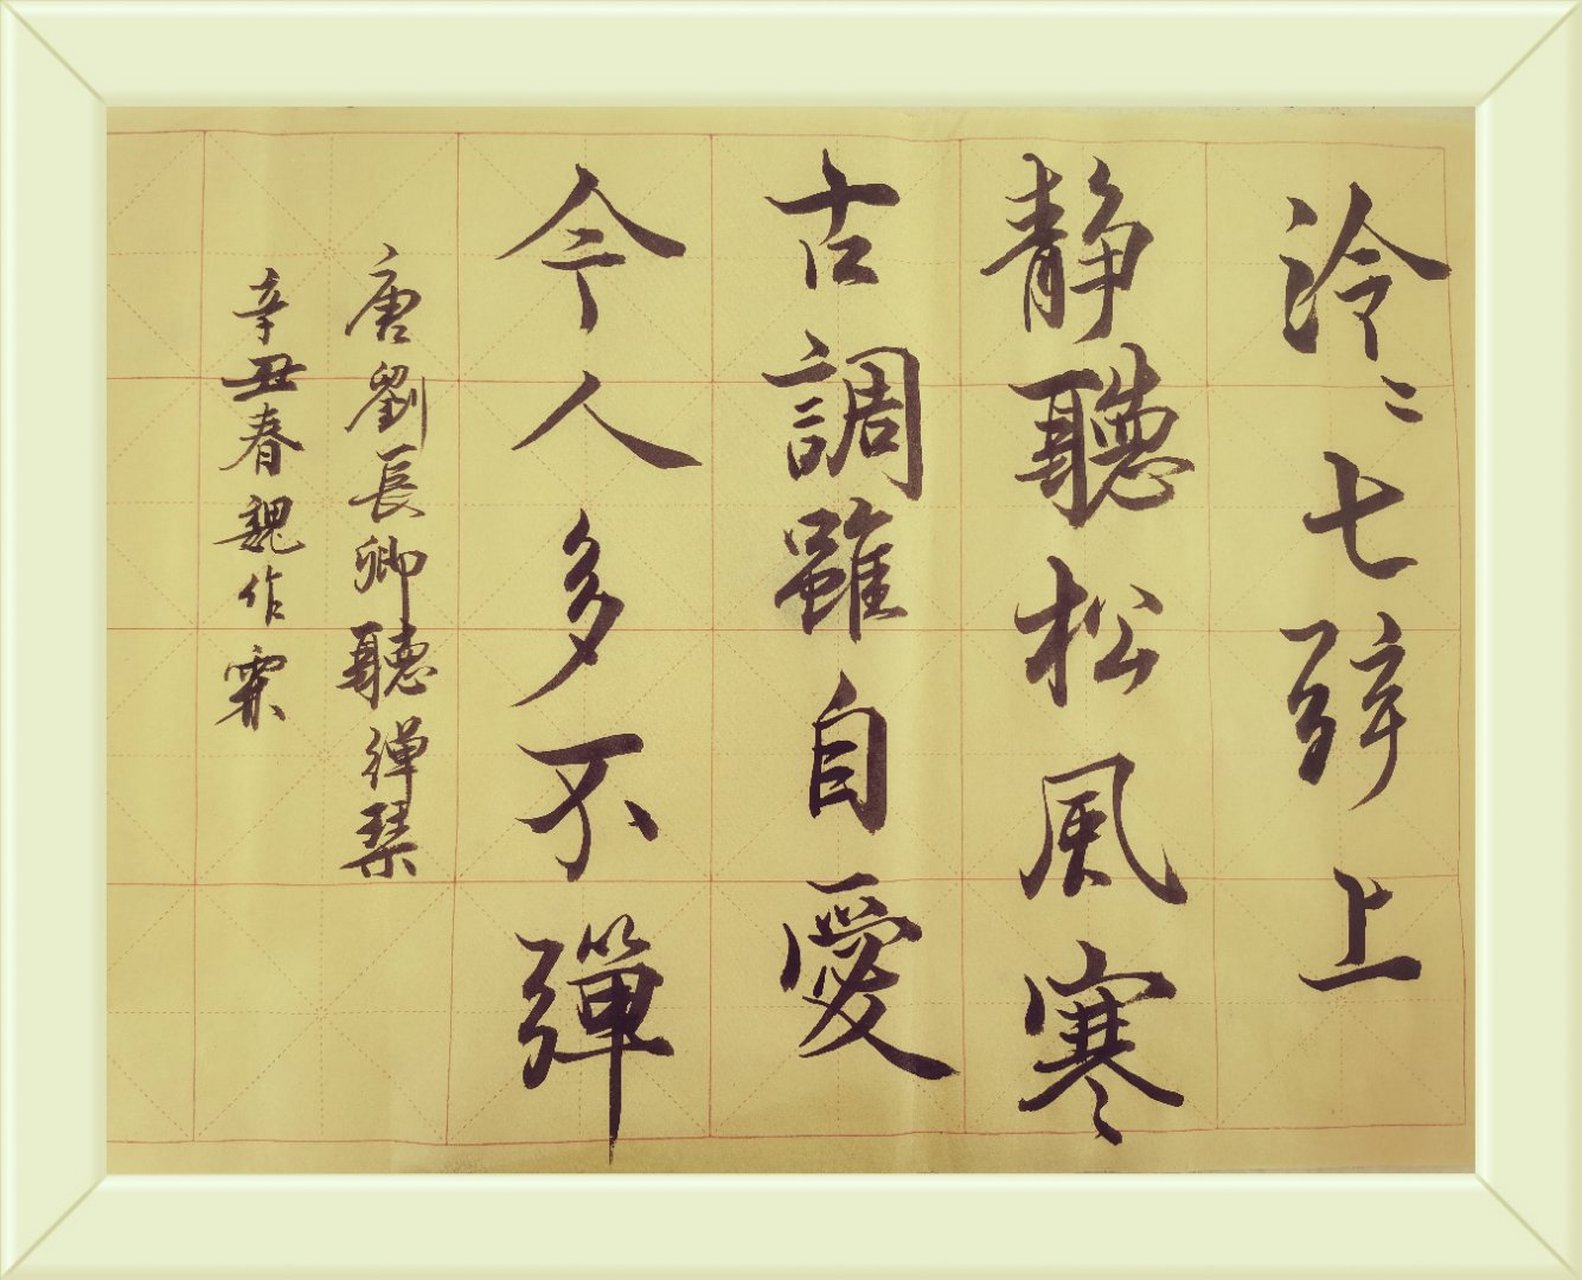 泠〻七上
静聽松風寒
古調雖自愛
今人多不彈
唐劉長卿聽彈琴
辛丑春魏作霖